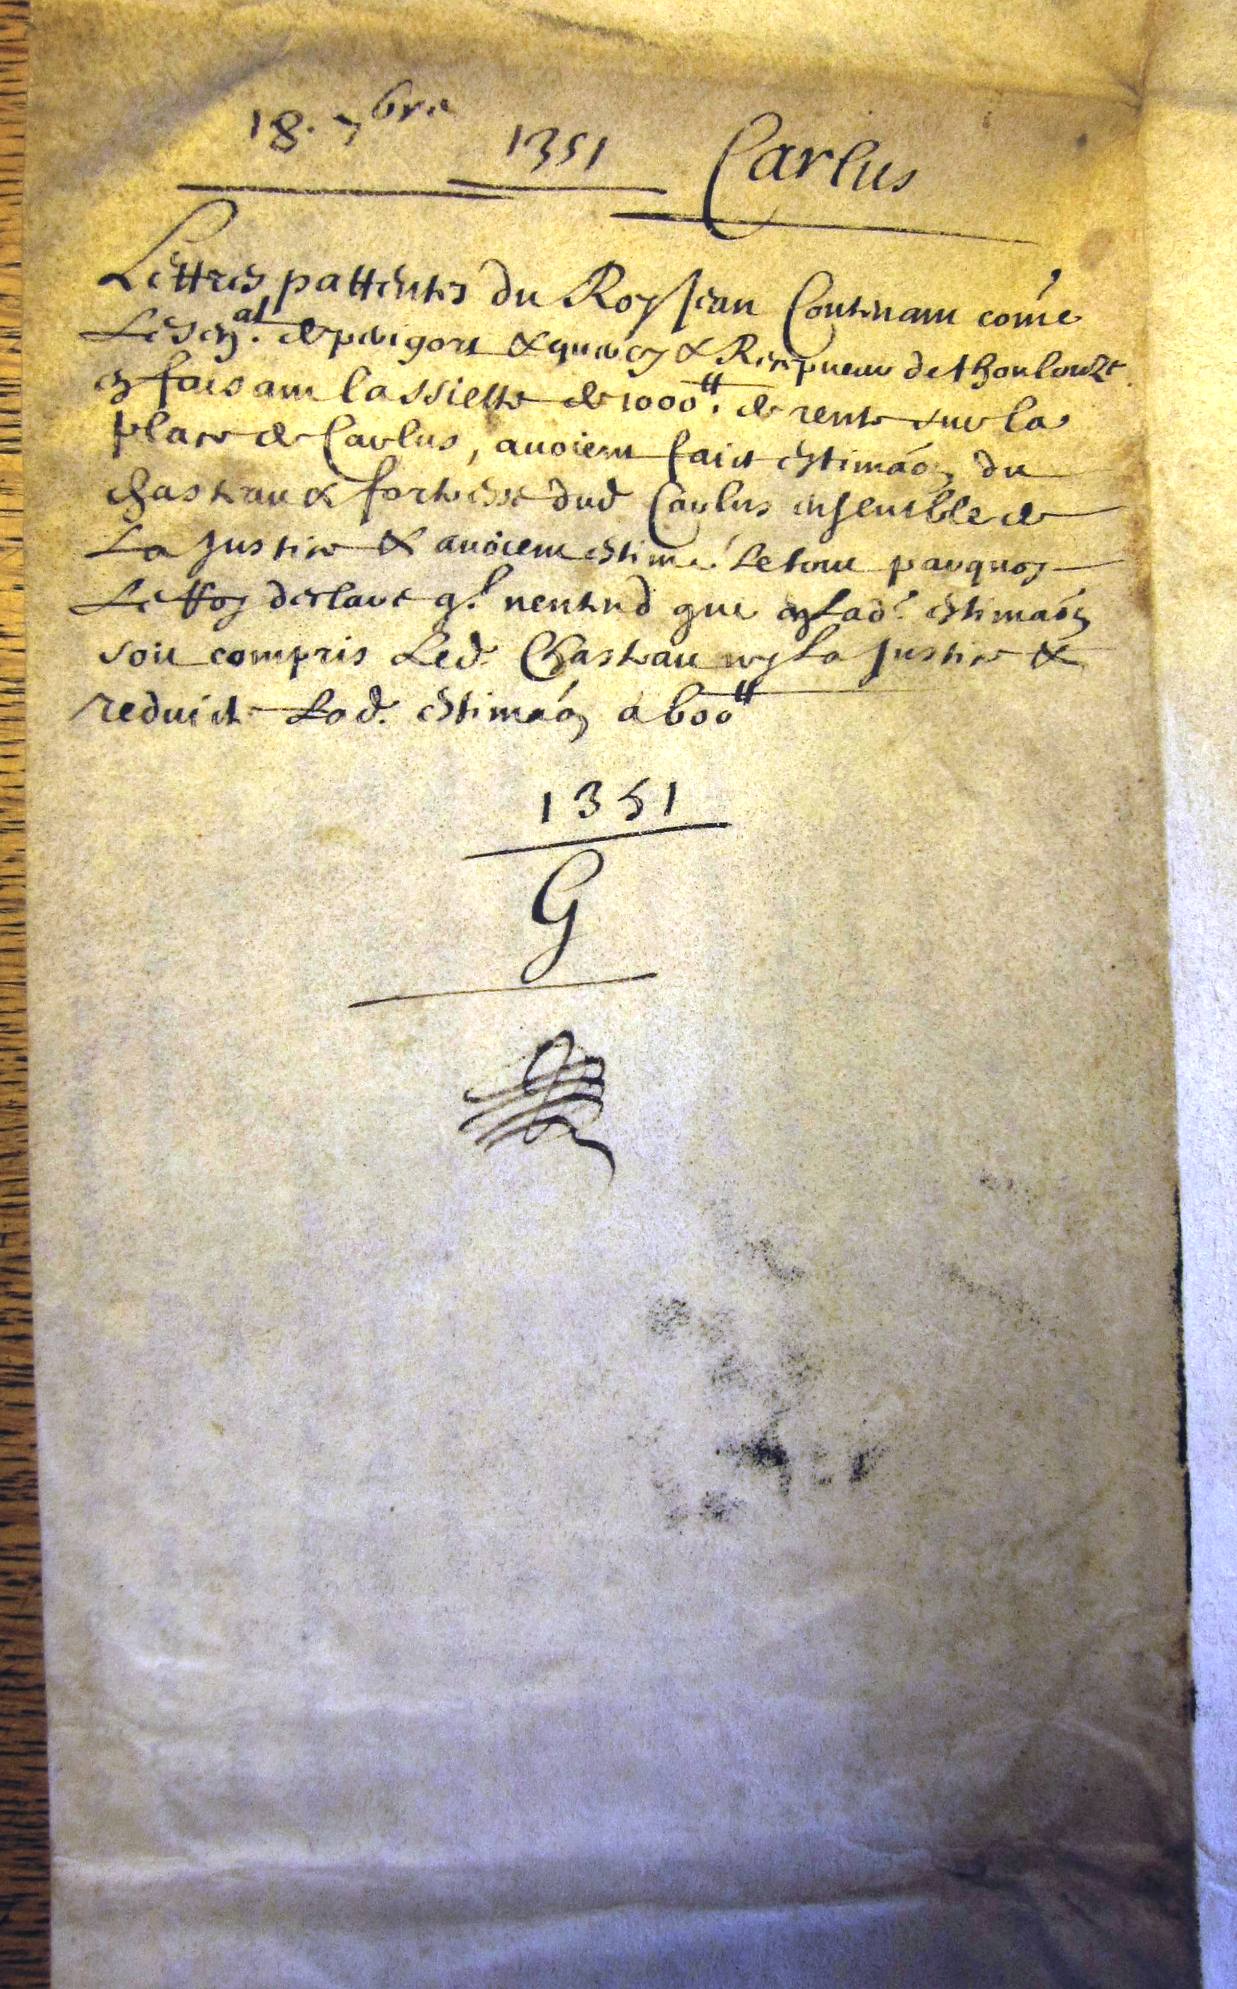 18. 7bre 1351 Carlus
Lettres pattentes du Roy Jean Contenant comē
Le Senal. de perigort & quercy & Recepueur de thoulouze
en faisant lassiette de 1000tt. de rente sur la
place de Carlus, auoient faict estimaōn du
chasteau & forteresse dud Carlus ensemble de
La Justice & auoient estimé Le tout parquoy
Le Roy declare ql nentend que en Lade estimaōn
soit compris Led. Chasteau ny La Justice &
reduict Lad. estimaōn a 600tt
1351
G